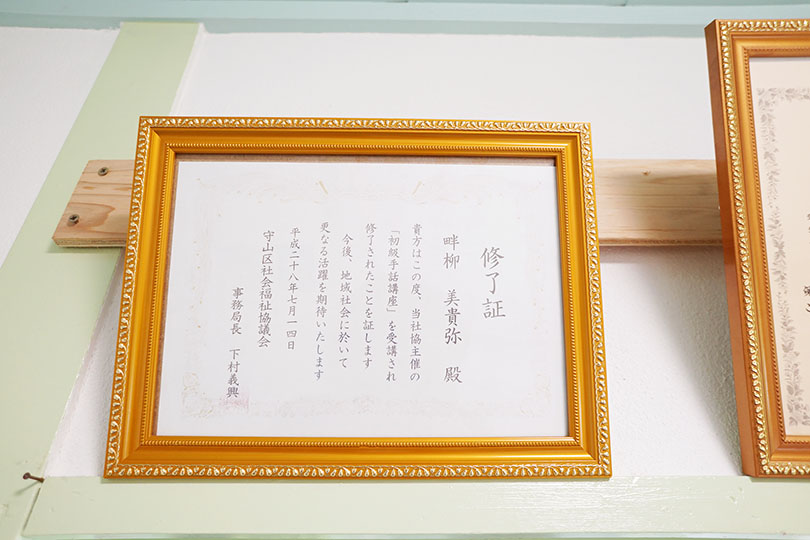 修了証
畔柳 美貴弥 殿
貴方はこの度、当社協主催の
「初級手話講座」を受講され
修了されたことを証します
今後、地域社会に於いて
更なる活躍を期待いたします
平成二十八年七月一四日
守山区社会福祉協議会
事務局長 下村義興